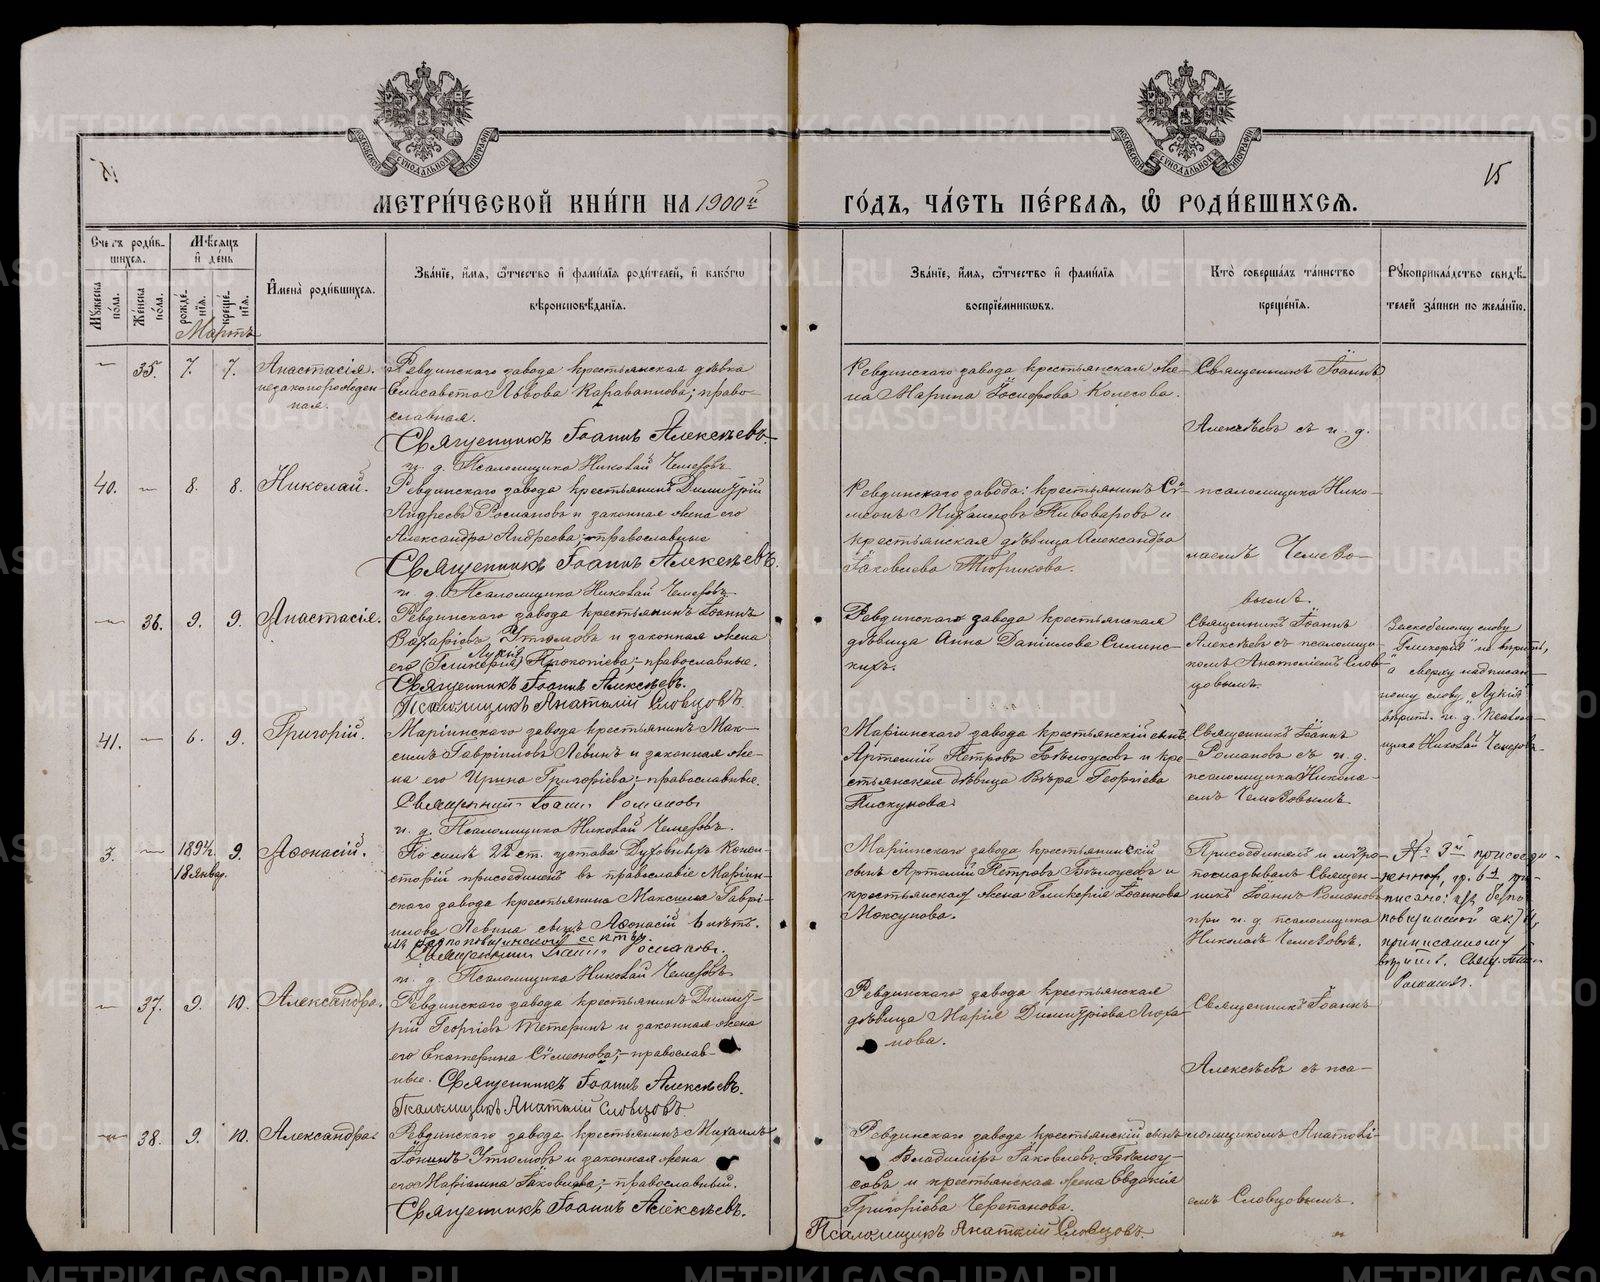 МЕТРИ́ЧЕСКОЙ КНИ́ГИ НА 1900й
ГО́ДЪ, ЧА́СТЬ ПЕ́РВАѦ, Ѡ РОДИ́ВШИХСѦ.
15
Счетъ роди́в-
шихсѧ.
Мꙋ́жеска по́ла.
Же́нска по́ла.
Мѣ́сѧцъ и де́нь
рожде́нїѧ.
креще́нїѧ.
И́мена роди́вшихсѧ.
Зва́нїе, и́мѧ, ѻ҆́тчество и фами́лїѧ роди́телей, и како́гѡ
вѣроисповѣ́данїѧ.
Зва́нїе, и́мѧ, ѻ҆́тчество и фами́лїѧ
воспрїе́мниковъ.
Кто̀ соверша́лъ та́инство
креще́нїѧ.
Рꙋкоприкла́дство свидѣ́-
телей за́писи по жела́нїю.
Мартъ
— 35. 7. 7. Анастасія.
незаконорожден-
ная.
Ревдинскаго завода крестьянская дѣвка
Елисавета Львова Караваннова; право-
славная.
Священникъ Іоаннъ Алексѣевъ.
и. д. Псаломщика Николай Чемезовъ
Ревдинскаго завода крестьянская же-
на Марина Іосифова Колесова.
Священникъ Іоаннъ
Алексѣевъ съ и. д.
40. — 8. 8. Николай.
Ревдинскаго завода крестьянинъ Димитрій
Андреевъ Романовъ и законная жена его
Александра Андреева; православные
Священникъ Іоаннъ Алексѣевъ.
и д. Псаломщика Николай Чемезовъ
Ревдинскаго завода: крестьянинъ Сѵ-
меонъ Михаиловъ Пивоваровъ и
крестьянская дѣвица Александра
Іаковлева Тюрикова.
псаломщика Нико-
лаемъ Чемезо-
вымъ.
— 36. 9. 9. Анастасія.
Ревдинскаго завода крестьянинъ Іоаннъ
Захаріевъ Утюмовъ и законная жена
Лукія
его (Гликерія) Прокопіева;- православные.
Священникъ Іоаннъ Алексѣевъ.
Псаломщикъ Анатолій Словцовъ.
Ревдинскаго завода крестьянская
дѣвица Анна Даніилова Силинс-
кихъ.
Священникъ Іоаннъ
Алексѣевъ съ псаломщи-
комъ Анатоліемъ Слов-
цовымъ.
Заскобеному слову
„Гликерія" не вѣрить,
а сверху надписан-
ному слову „Лукія"
вѣрить. и. д. псалом-
щика Николай Чемезовъ
41. — 6. 9. Григорій.
Маріинскаго завода крестьянинъ Мак-
симъ Гавріиловъ Левинъ и законная же-
на его Ирина Григоріева;- православные.
Священникъ Іоаннъ Романовъ
и. д. Псаломщика Николай Чемезовъ.
Маріинскаго завода крестьянскій сынъ
Артемій Петровъ Бѣлоусовъ и кре-
стьянская дѣвица Вѣра Георгіева
Пискунова.
Священникъ Іоаннъ
Романовъ съ и. д.
псаломщика Никола-
емъ Чемезовымъ
3. — 1894г. 18 январ. 9. Аѳонасій.
По силѣ 22 ст. устава Духовныхъ Конси-
сторій присоединенъ въ православіе Маріин-
скаго завода крестьянина Максима Гаврі-
илова Левина сынъ Аѳонасій 6 лѣтъ.
изъ безпоповщинской секты.
Священникъ Іоаннъ Романовъ.
и. д. Псаломщика Николай Чемезовъ
Маріинскаго завода крестьянскій
сынъ Артемій Петровъ Бѣлоусовъ и
крестьянская жена Гликерія Іоаннова
Моксунова.
Присоединялъ и мѵро-
помазывалъ Священ-
никъ Іоаннъ Романовъ
при и. д. псаломщика
Николаѣ Чемезовѣ.
№ 3й присоеди-
писано: изъ безпо-
повщинской секты,
приписанному
вѣрить. Свящ. Іоан.
Романовъ.
— 37. 9. 10. Александра.
Ревдинскаго завода крестьянинъ Димит-
рій Георгіевъ Тетеринъ и законная жена
его Екатерина Сѵмеонова;- православ-
ные. Священникъ Іоаннъ Алексѣевъ.
Псаломщикъ Анатолій Словцовъ
Ревдинскаго завода крестьянская
дѣвица Марія Димитріева
Священникъ Іоаннъ
Алексѣевъ съ пса-
— 38. 9. 10. Александра.
Ревдинскаго завода крестьянинъ Михаилъ
Іонинъ Утюмовъ и законная жена
его Маріамна Іаковлева;- православный.
Священникъ Іоаннъ Алексѣевъ.
Ревдинскаго завода крестьянскій сынъ
Владиміръ Іаковлевъ Бѣлоу-
совъ и крестьянская жена Евдокія
Григоріева Черепанова.
Псаломщикъ Анатолій Словцовъ.
ломщикомъ Анатолі-
емъ Словцовымъ.
METRIKI.GASO-URAL.RU